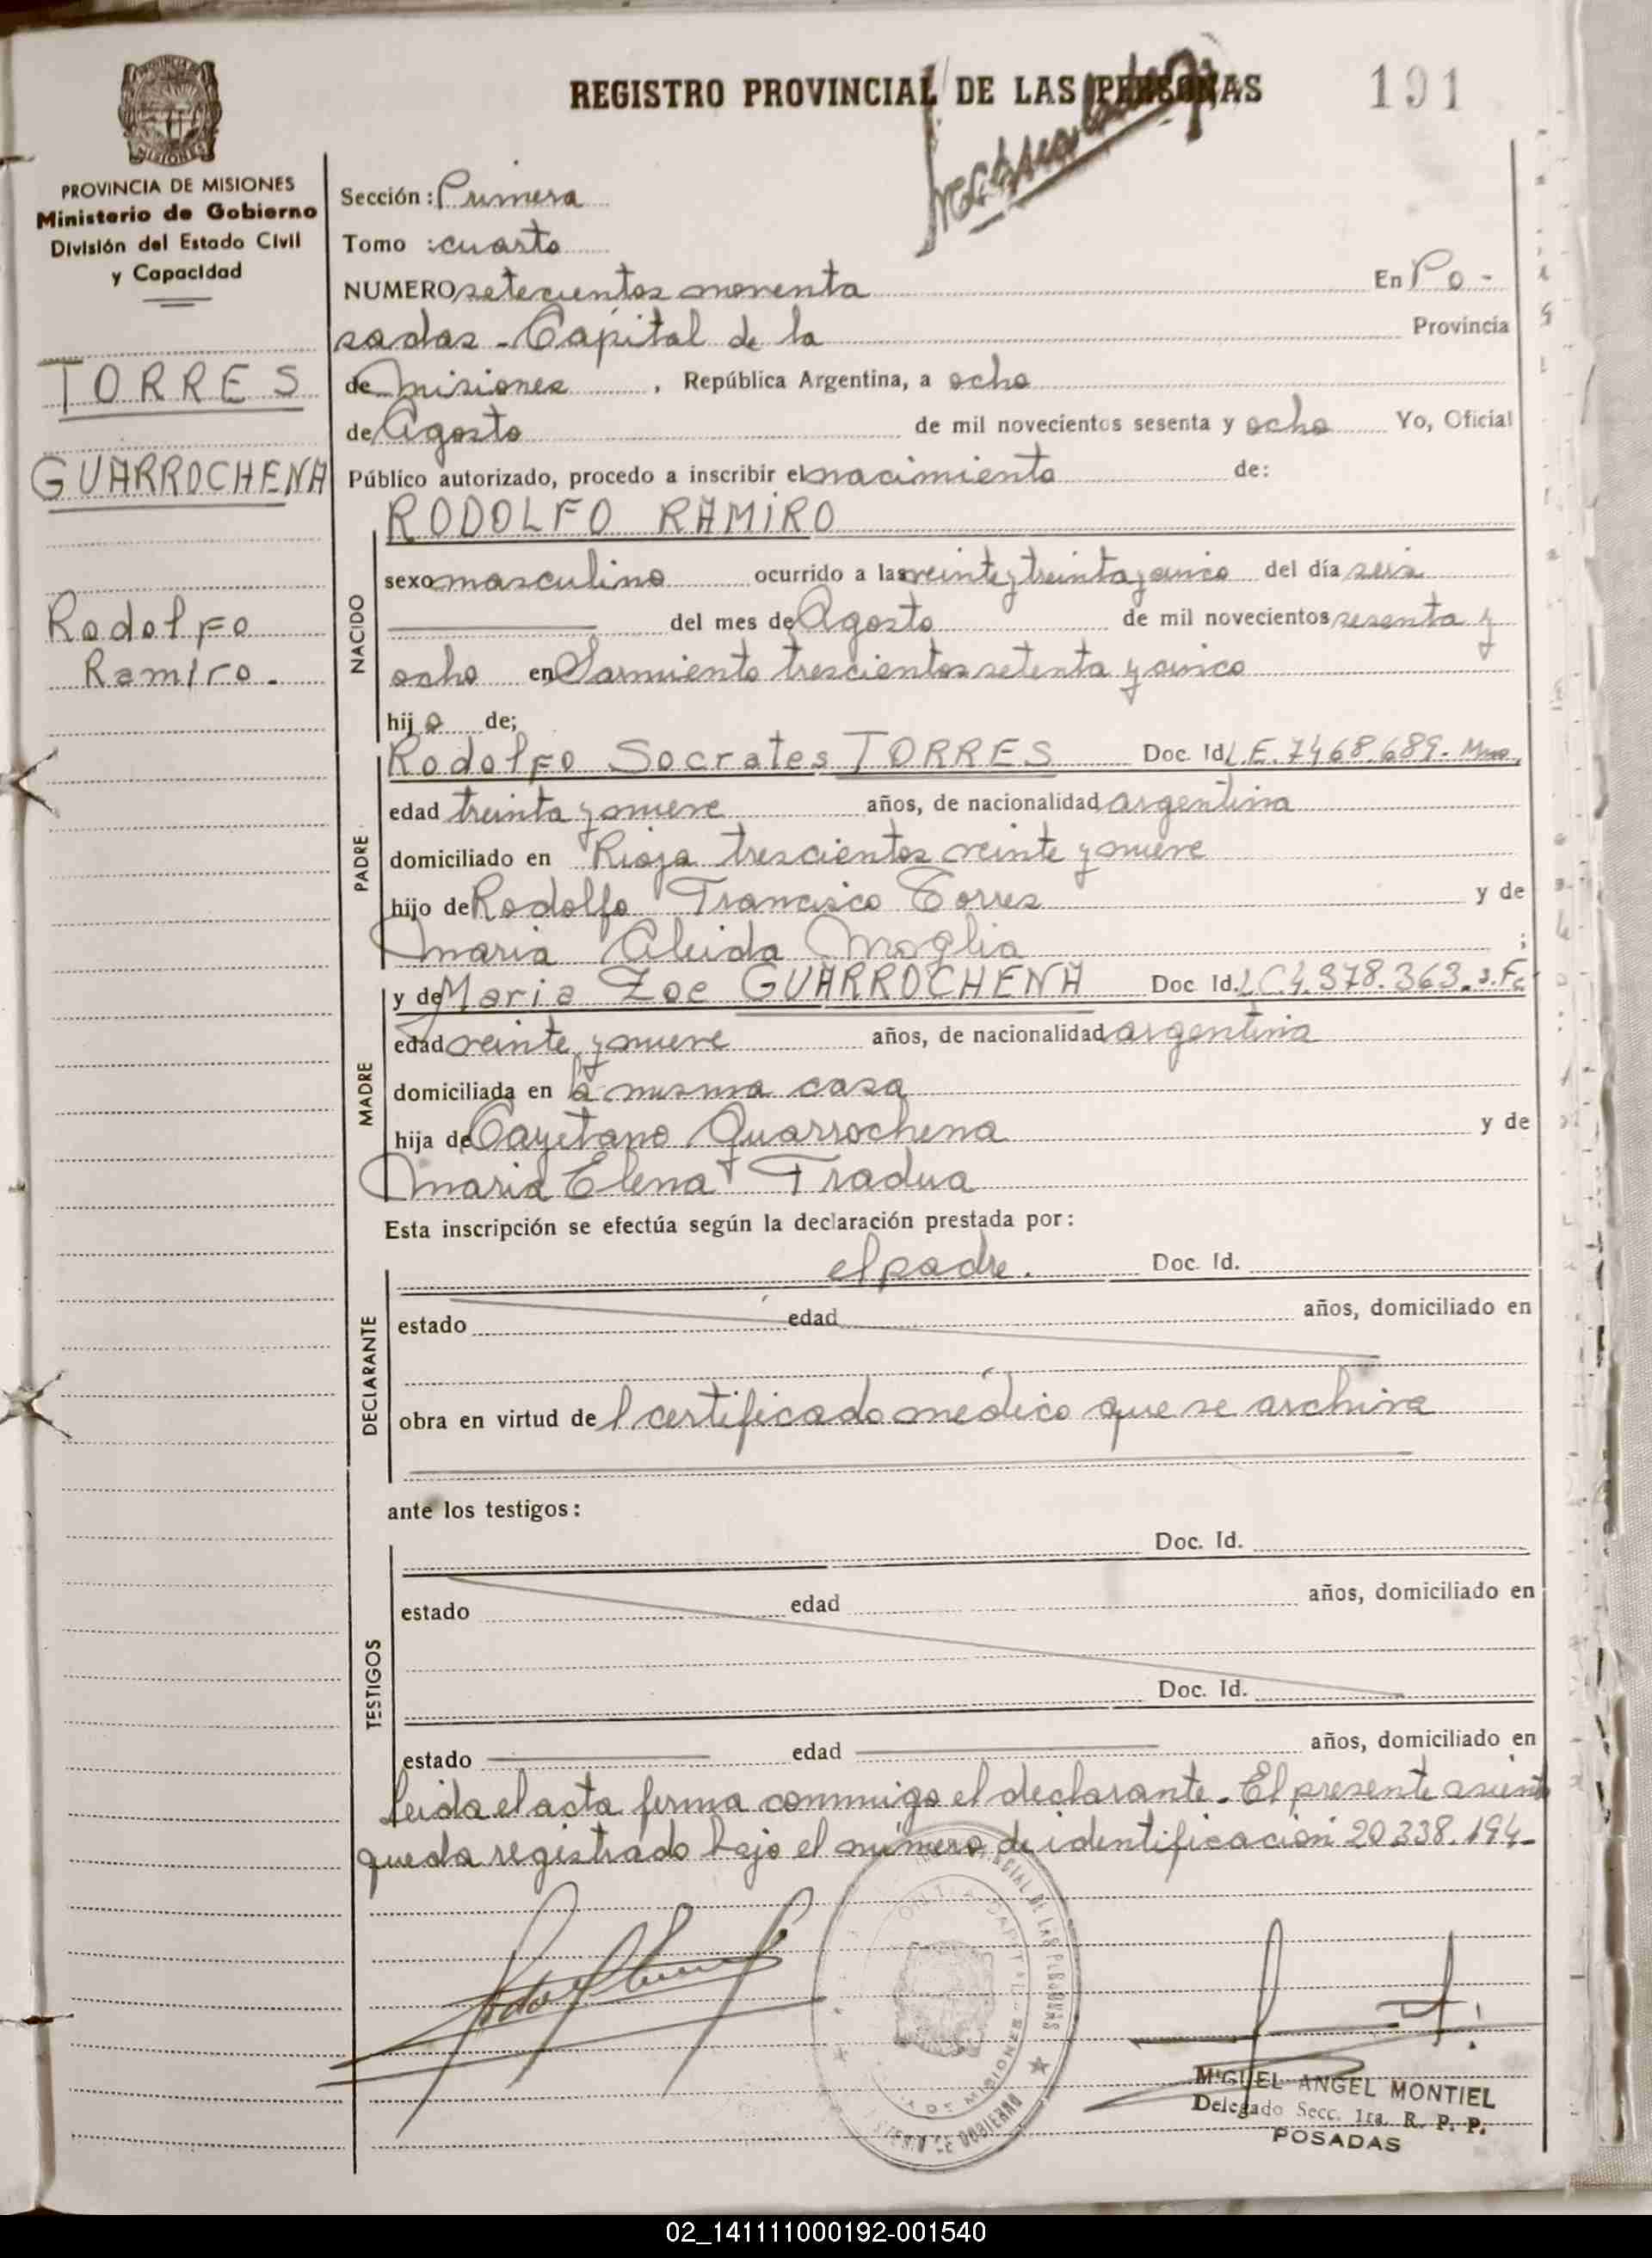 REGISTRO PROVINCIAL DE LAS PERSONAS
191
PROVINCIA DE MISIONES
Ministerio de Gobierno
División del Estado Civil
y Capacidad
TORRES
GUARROCHENA
Rodolfo
Ramiro.
Sección: Primera
Tomo : cuarto
NUMERO setecientos noventa En Po-
sadas - Capital de la Provincia
de Misiones , República Argentina, a ocho
de Agosto de mil novecientos sesenta y ocho Yo, Oficial
Público autorizado, procedo a inscribir el nacimiento de:
RODOLFO RAMIRO
NACIDO
sexo masculino ocurrido a las veinte y treinta y cinco del día seis
del mes de Agosto de mil novecientos sesenta y
ocho en Sarmiento trescientos setenta y cinco
hijo de;
Rodolfo Socrates TORRES Doc. Id. L.E. 7.468.689-
PADRE
edad treinta y nueve años, de nacionalidad argentina
domiciliado en Rioja trescientos veinte y nueve
hijo de Rodolfo Francisco Torres y de
Maria Aleida Moglia ;
y de Maria Zoe GUARROCHENA Doc Id. L.C. 4.378.363.
MADRE
edad veinte y nueve años, de nacionalidad argentina
domiciliada en la misma casa
hija de Cayetano Guarrochena y de
Maria Elena Fradua
Esta inscripción se efectúa según la declaración prestada por:
el padre. Doc. Id.
DECLARANTE
estado edad años, domiciliado en
obra en virtud del certificado médico que se archiva
ante los testigos:
Doc. Id.
TESTIGOS
estado edad años, domiciliado en
Doc. Id.
estado edad años, domiciliado en
Leida el acta firma conmigo el declarante. El presente asiento
queda registrado bajo el número de identificación 20.338.194-
MIGUEL ANGEL MONTIEL
Delegado Secc. 1ra. R. P. P.
POSADAS
02_141111000192-001540